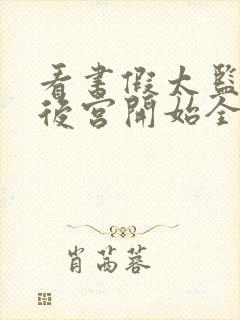 看書假太監
後宮開始全
肖茜蓉